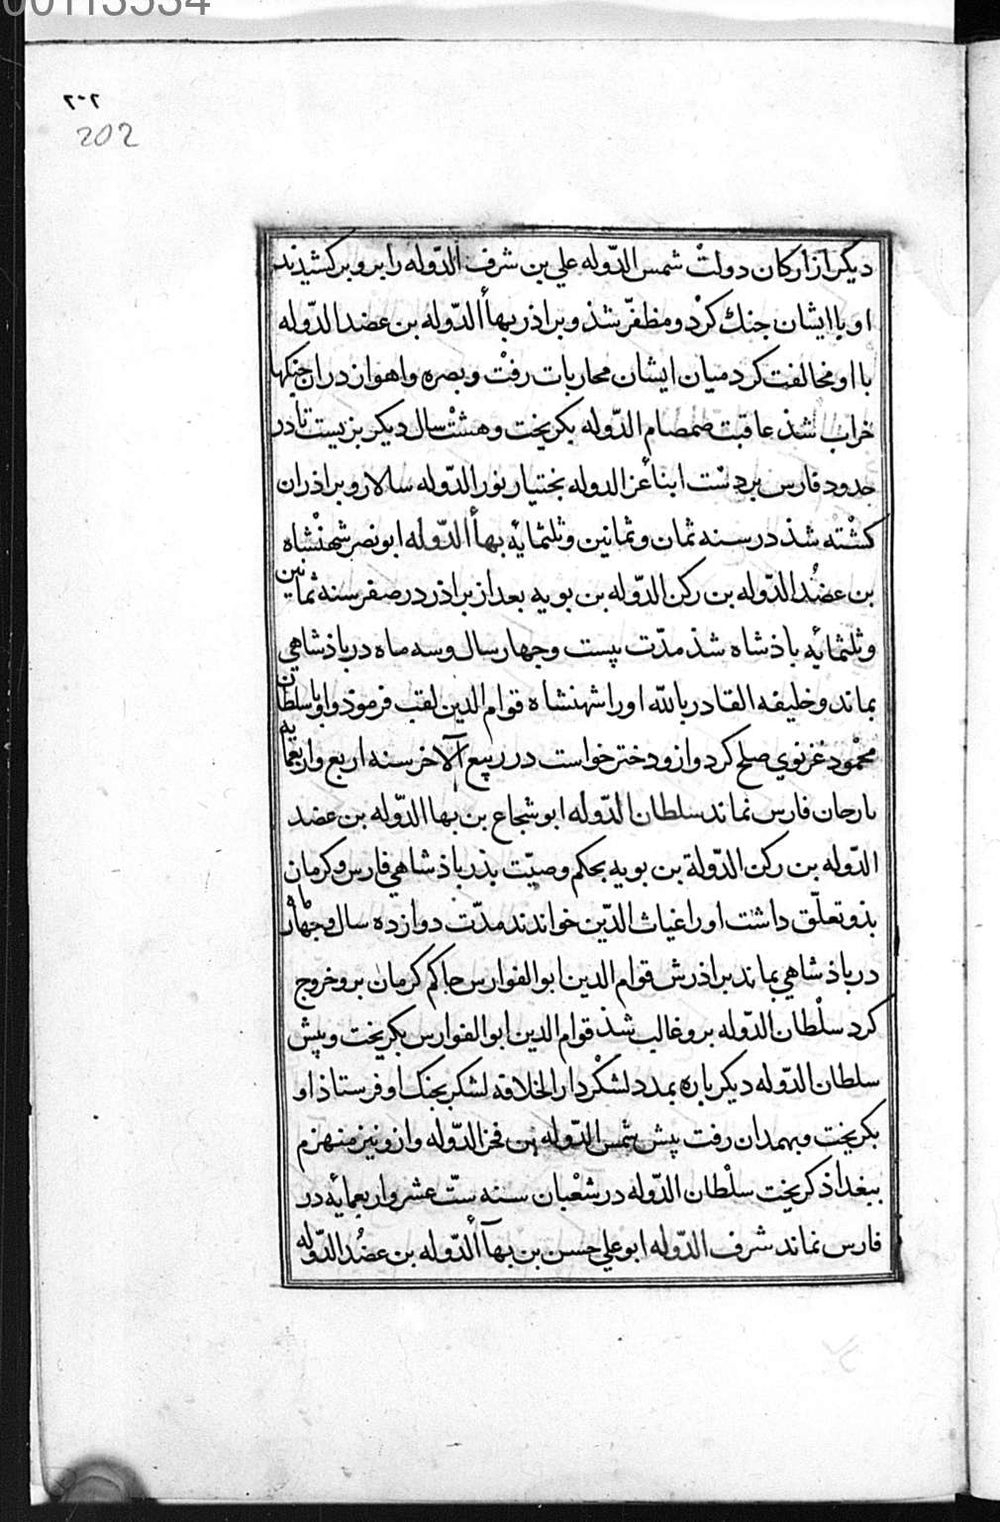 00113534
٢٠٢
202
ديكر از اركان دولتْ شمس الدّوله علي بن شرف الدّوله را برو بركشيدند
او با ايشان جنك كرْد و مظفّر شذ و براذر بهأ الدّوله بن عضد الدّوله
با او مخالفت كرد ميان ايشان محاربات رفتْ و بصره و اهواز دران جنكها
خراب شذ عاقبت صمصام الدّوله بكريخت و هشتْ سال ديكر بزيست تا در
حدود فارس بر دست ابنأ عز الدوله بختيار نور الدّوله سالار و براذران
كشْته شذ در سنه ثمان و ثمانين و ثلثمائه بهأ الدّوله ابو نصر شهنْشاه
بن عضُد الدّوله بن ركن الدّوله بن بويه بعد از براذر در صفر سنه ثمانين
و ثلثمائه باذشاه شذ مدّت بيست و جهار سال و سه ماه در باذشاهي
بماند و خليفه القادر بالله او را شهنشاه قوام الدين لقب فرموذ و او با سلطان
محمْود غزنوي صلح كرد و ازو دختر خواست در ربيع الآخر سنه اربع و اربعمايه
بارجان فارس نماند سلطان الدّوله ابو شجاع بن بها الدّوله بن عضد
الدّوله بن ركن الدّولة بن بويه بحكم وصيّت بذر باذشاهي فارس و كرمان
بذو تعلّق داشت او را غياث الدّين خواندند مدّت دوازده سال و جهار ماه
در باذشاهي بماند براذرش قوام الدين ابو الفوارس حاكم كرمان برو خروج
كرد سلْطان الدّوله برو غالب شذ قوام الدين ابو الفوارس بكريخت و پيش
سلطان الدّوله ديكر باره بمدد لشكْر دار الخلافه لشكر بجنك او فرستاذ او
بكريخت و بهمدان رفت پيش شمس الدّوله بن فخر الدّوله و ازو نيز منهزم
ببغداذ كريخت سلْطان الدّوله در شعْبان سنه ستّ عشر و اربعمائه در
فارس نماند شرف الدّوله ابو علي حسن بن بهآأ الدّوله بن عضُد الدّوله